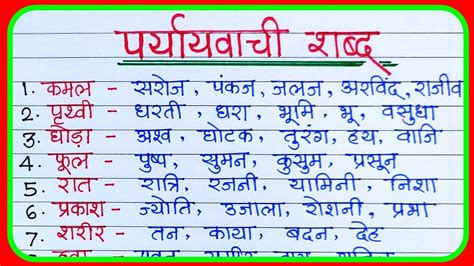 पर्यायवाची शब्द
1. कमल - सरोज, पंकज, जलज, अरविंद, राजीव
2. पृथ्वी - धरती, धरा, भूमि, भू, वसुधा
3. घोड़ा - अश्व, घोटक, तुरंग, हय, वाजि
4. फूल - पुष्प, सुमन, कुसुम, प्रसून
5. रात - रात्रि, रजनी, यामिनी, निशा
6. प्रकाश - ज्योति, उजाला, रोशनी, प्रभा
7. शरीर - तन, काया, बदन, देह